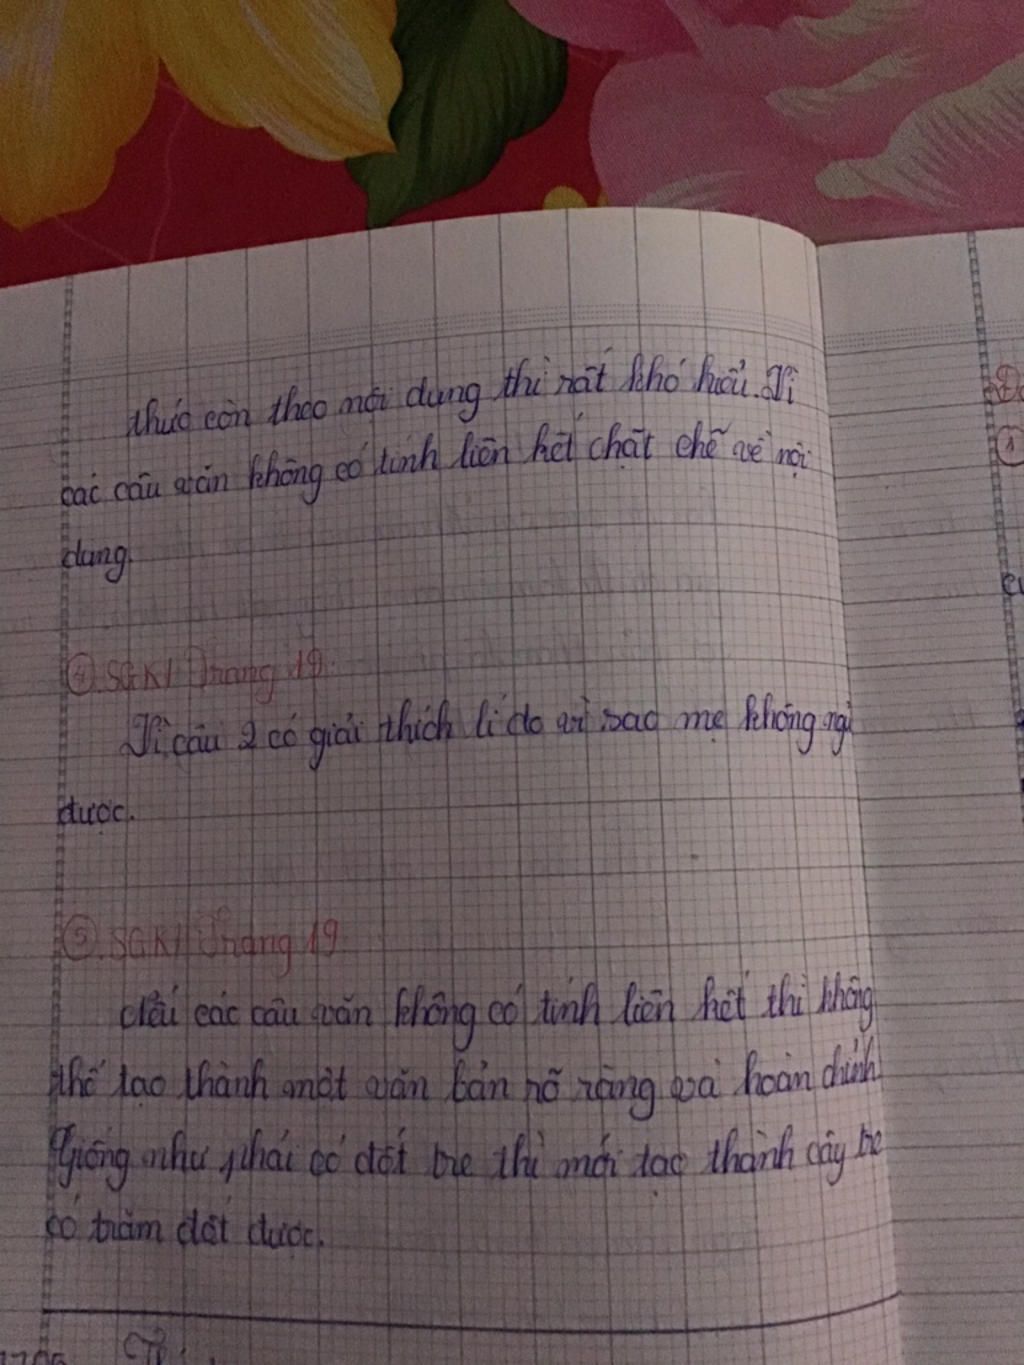 thức còn theo nội dung thì rất khó hiểu. Vì
các câu văn không có tính liên kết chặt chẽ về nội
dung.
④. SGK/ Trang 19.
Vì câu 2 có giải thích lí do vì sao mẹ không ngủ
được.
⑤. SGK/ Trang 19
Nếu các câu văn không có tính liên kết thì không
thể tạo thành một văn bản rõ ràng và hoàn chỉnh
Giống như phải có đốt tre thì mới tạo thành cây tre
có trăm đốt được.